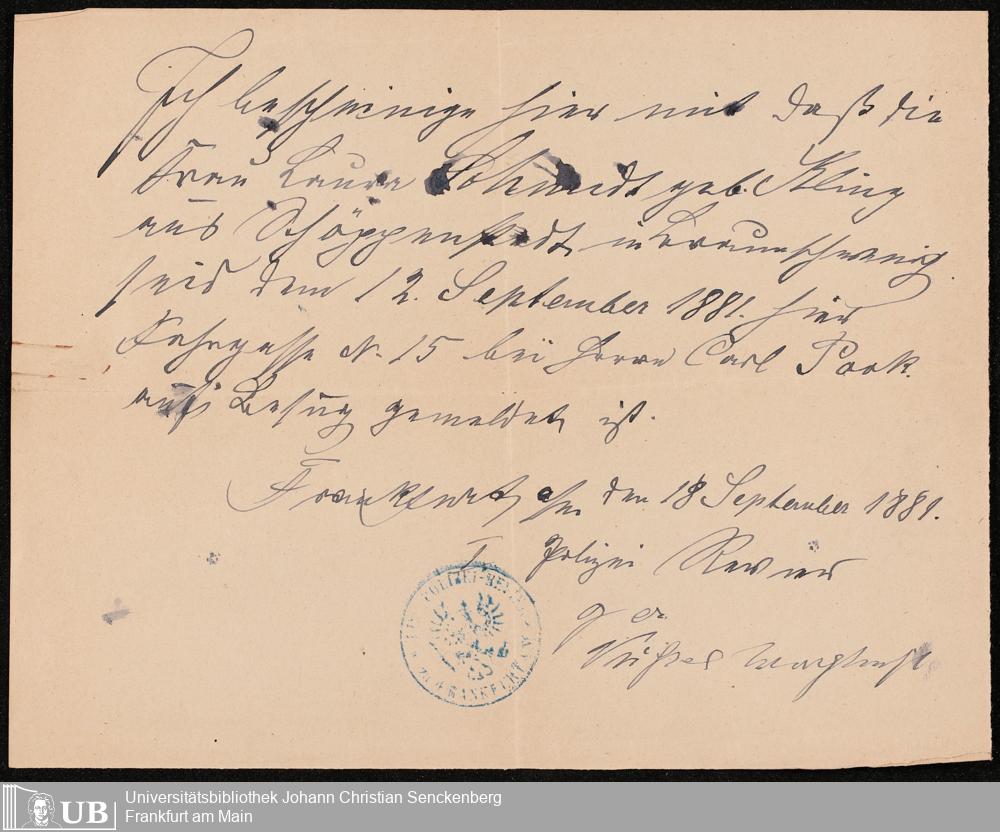 Ich bescheinige hier mit daß die
Frau Laura Schmidt geb. Kling
aus Schöppenstedt in Braunschweig
seid dem 12. September 1881. hier
Fahrgasse N. 15 bei Herrn Carl Pook.
auf Besuch gemeldet ist.
Frankfurt a/m den 18 September 1881.
I Polizei Revier
POLIZEI-REVIER
ZU FRANKFURT A/M
UB
Universitätsbibliothek Johann Christian Senckenberg
Frankfurt am Main